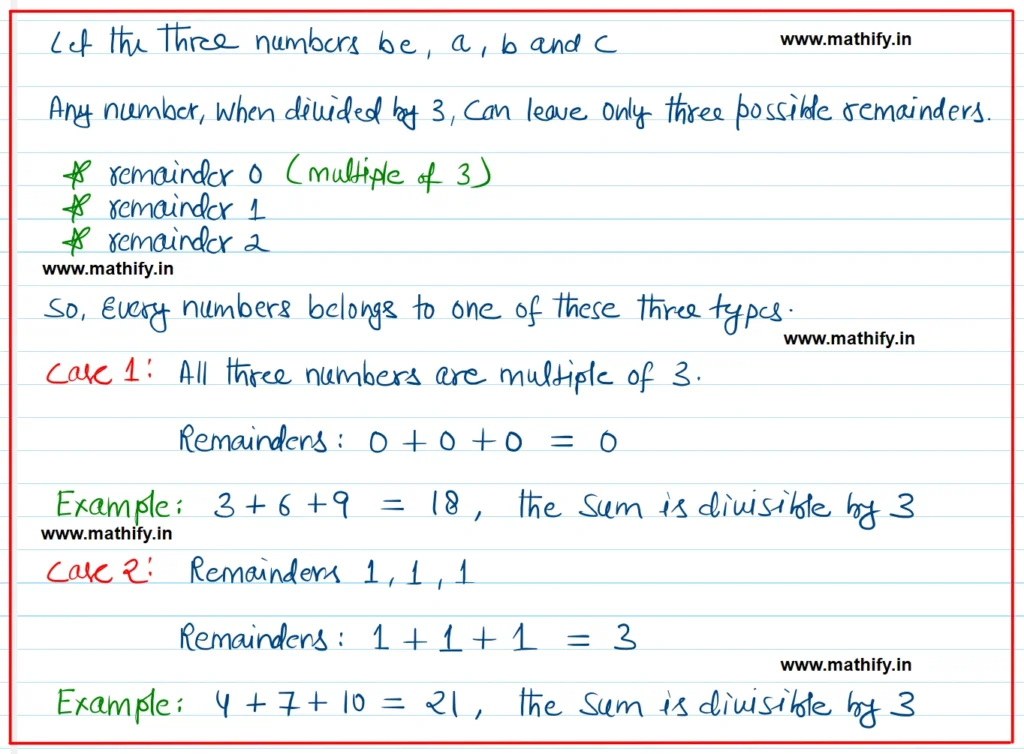 Let the three numbers be, a, b and c
www.mathify.in
Any number, when divided by 3, can leave only three possible remainders.
* remainder 0 (multiple of 3)
* remainder 1
* remainder 2
www.mathify.in
So, Every numbers belongs to one of these three types.
www.mathify.in
Case 1: All three numbers are multiple of 3.
Remainders: 0 + 0 + 0 = 0
Example: 3 + 6 + 9 = 18, the sum is divisible by 3
www.mathify.in
Case 2: Remainders 1, 1, 1
Remainders: 1 + 1 + 1 = 3
www.mathify.in
Example: 4 + 7 + 10 = 21, the sum is divisible by 3